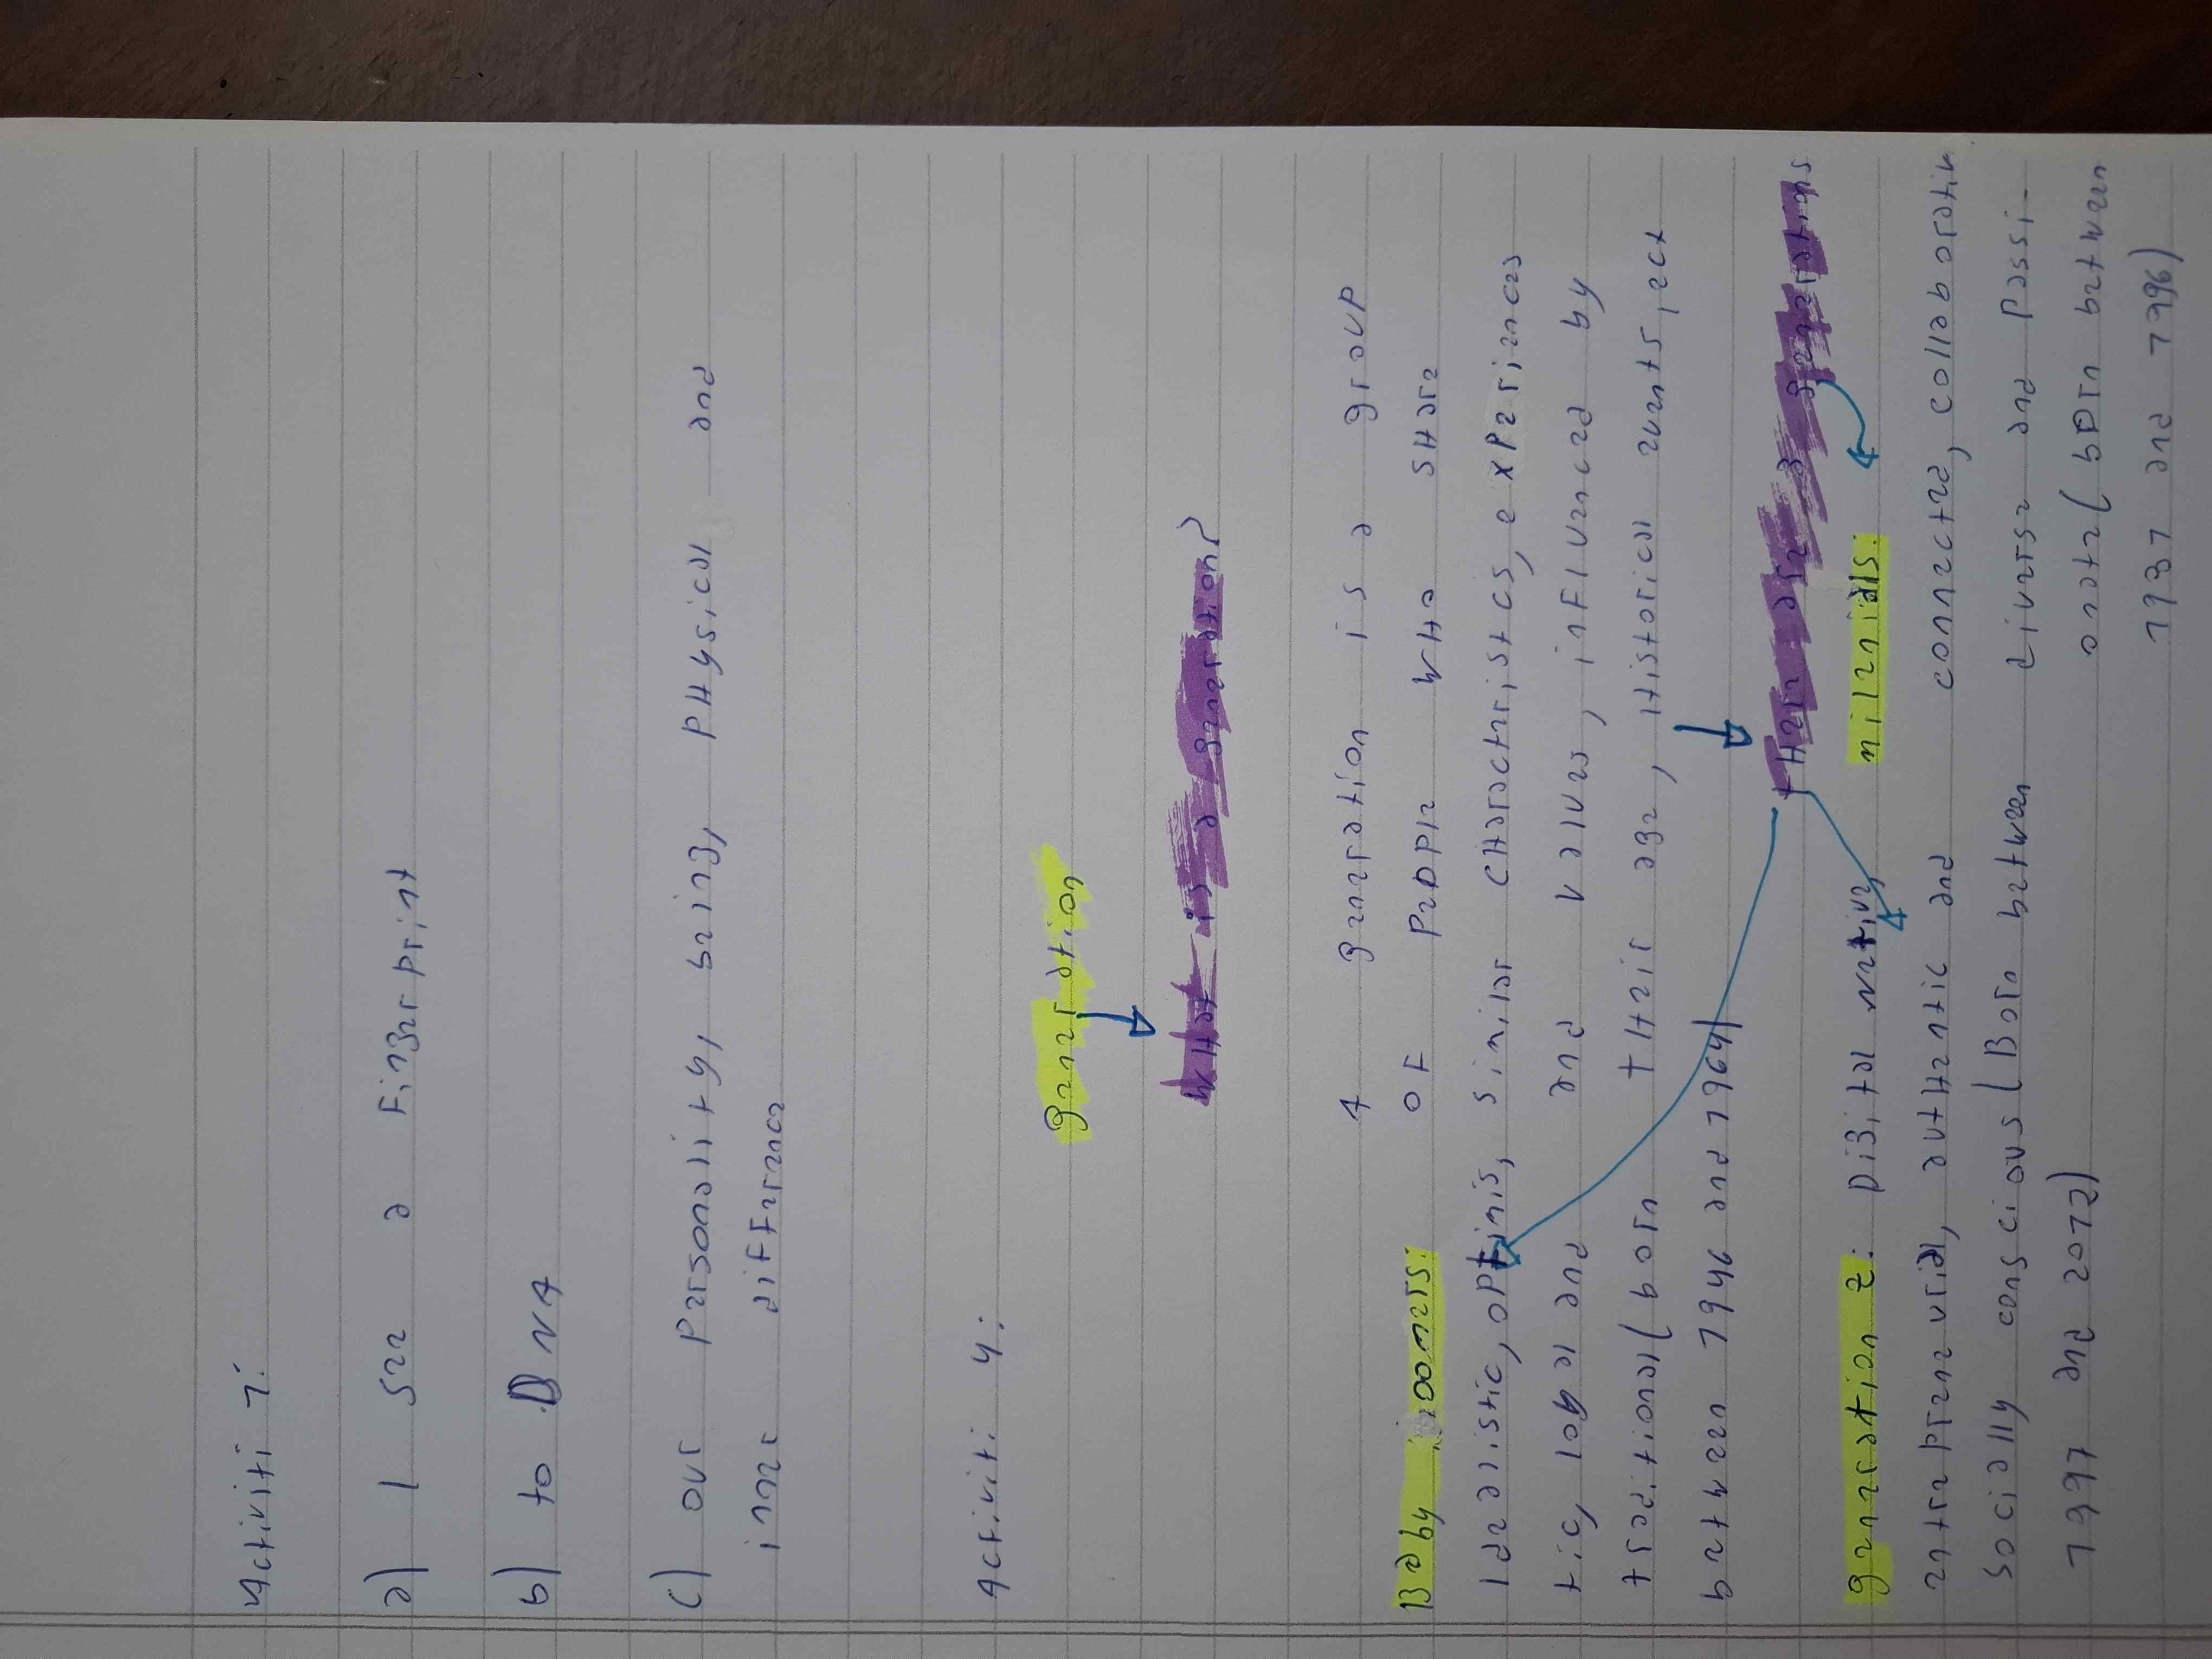 Activiti 1:
a) I see a Fingerprint
b) to DNA
c) our Personality, being, PHysical and
inner difference
Activiti 4:
generation
WHat is a generation?
A generation is a group
OF PeoPle WHo sHare
similar cHaracteristcs, exPeriences
and values, inFluenced by
tHeir age, Historical events, ect
Baby boomers:
Idealistic, oPtimis,
tic, logal and
traditional (born
between 1946 and 1964)
tHere are 3 generations
generation z: Digital native,
entrepreneurial, autHentic and
socially conscious (Born between
1997 and 2012)
milenials:
connected, collaborativ
diverse and Passi-
onate (born between
1981 and 1996)